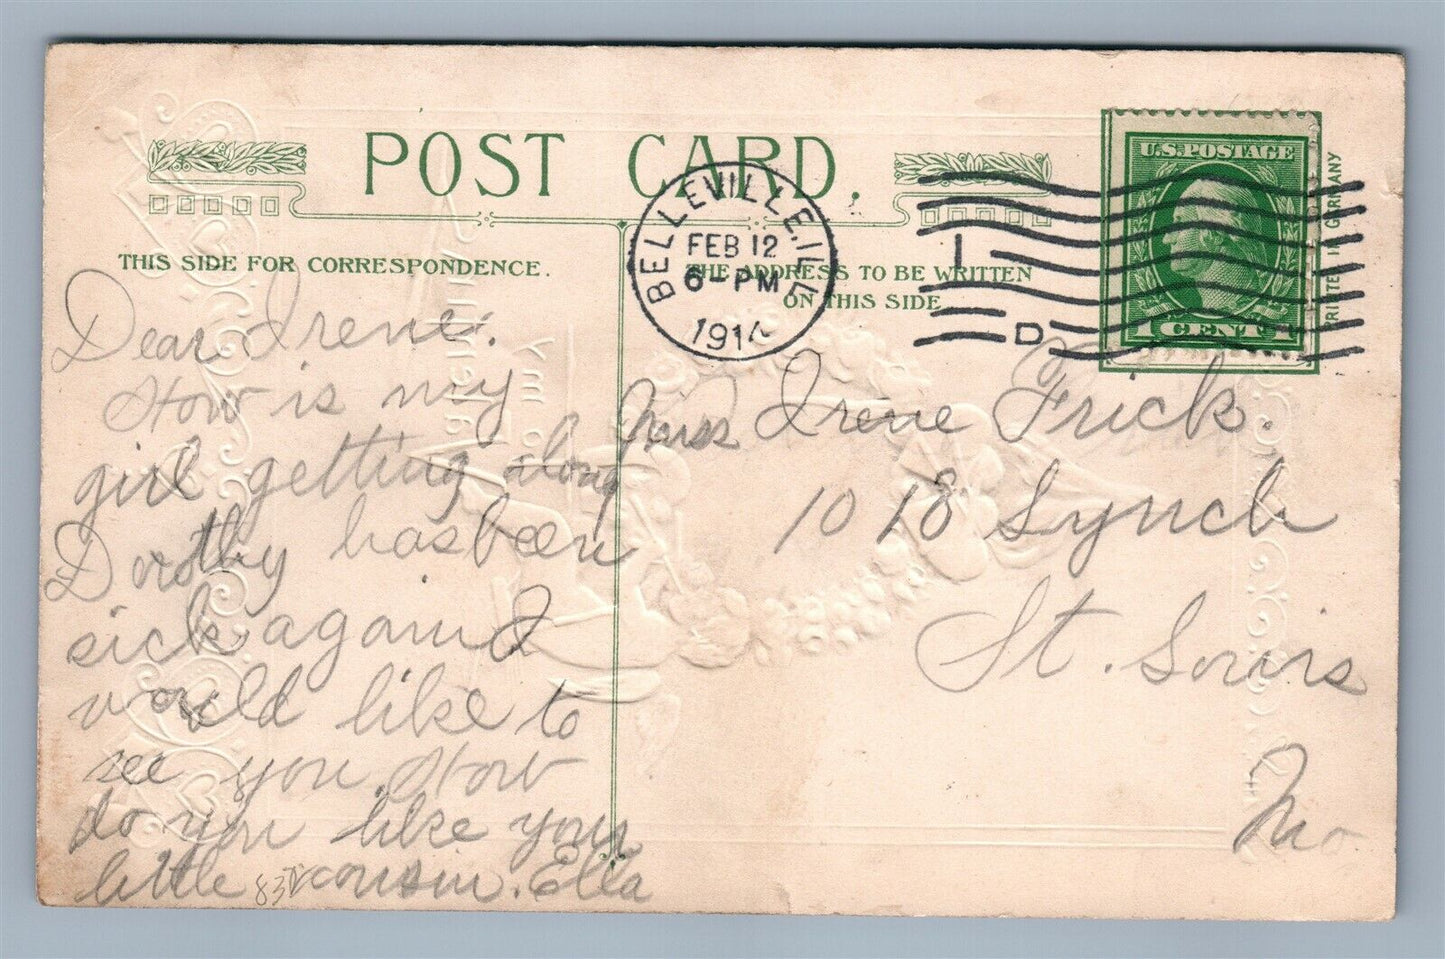 POST CARD.
THIS SIDE FOR CORRESPONDENCE.
THE ADDRESS TO BE WRITTEN
ON THIS SIDE
BELLEVILLE, ILL.
FEB 12
6-PM
1914
1
D
U.S. POSTAGE
1 CENT 1
PRINTED IN GERMANY
Dear Irene:
How is my
girl getting along
Dorothy has been
sick again I
would like to
see you. How
do you like your
little cousin. Ella
83
Miss Irene Frick.
1018 Lynch
St. Louis
Mo.